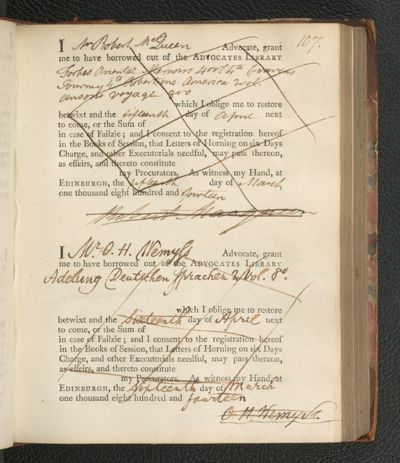 107.
I Mr Robert McQueen Advocate, grant
me to have borrowed out of the ADVOCATES LIBRARY
Forbes Oriental Memoirs 4 vol 4to
Journey Robertsons America vol.
ansons voyage 8vo
which I oblige me to restore
betwixt and the fifteenth day of April next
to come, or the Sum of
in case of Failzie; and I consent to the registration hereof
in the Books of Session, that Letters of Horning on six Days
Charge, and other Executorials needful, may pass thereon,
as effeirs, and thereto constitute
my Procurators. As witness my Hand, at
EDINBURGH, the fifteenth day of March
one thousand eight hundred and fourteen
Robert Macqueen
I Mr. O. H. Wemyss Advocate, grant
me to have borrowed out of the ADVOCATES LIBRARY
Adelung Deutschen Sprachen 2 Vol. 8o.
which I oblige me to restore
betwixt and the Sixteenth day of April next
to come, or the Sum of
in case of Failzie; and I consent to the registration hereof
in the Books of Session, that Letters of Horning on six Days
Charge, and other Executorials needful, may pass thereon,
as effeirs, and thereto constitute
my Procurators. As witness my Hand, at
EDINBURGH, the Sixteenth day of March
one thousand eight hundred and fourteen
O. H. Wemyss.